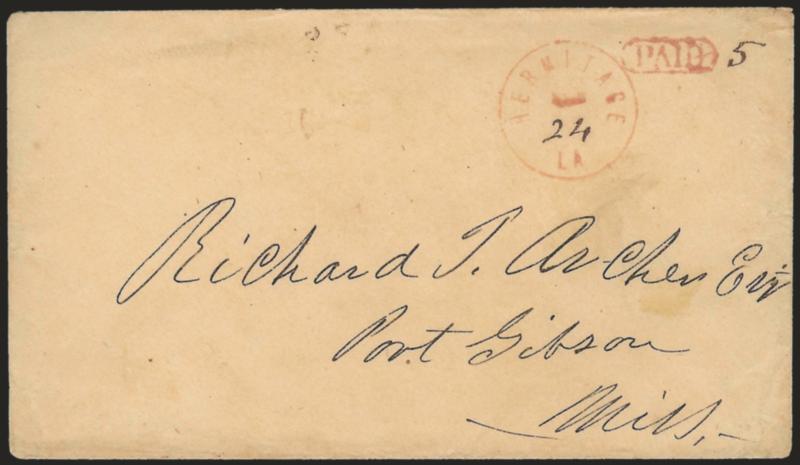 HERMITAGE
24
LA
PAID 5
Richard T. Archer Esq
Port Gibson
Miss.